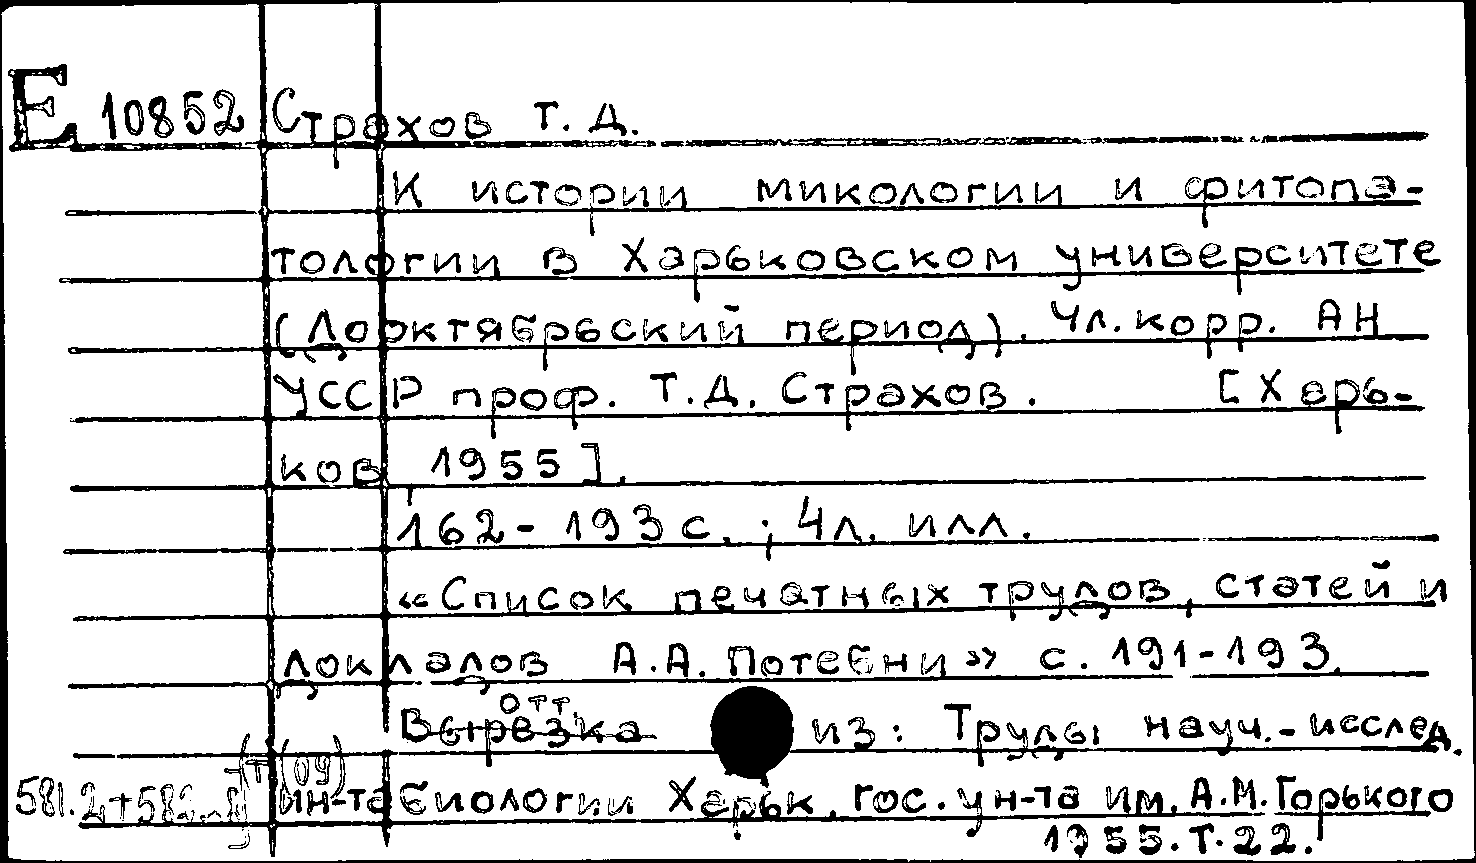 Е 10852 Страхов Т. Д.
К истории микологии и фитопа-
тологии в Харьковском университете
(Дооктябрьский период). Чл. корр. АН
УССР проф. Т. Д. Страхов. [Харь-
ков, 1955].
162-193 с. ; 4 л. илл.
«Список печатных трудов, статей и
докладов А. А. Потебни» с. 191-193.
Отт.
Вырезка из: Труды науч.-исслед.
ин-та биологии Харьк. гос. ун-та им. А. М. Горького
1955. Т. 22.